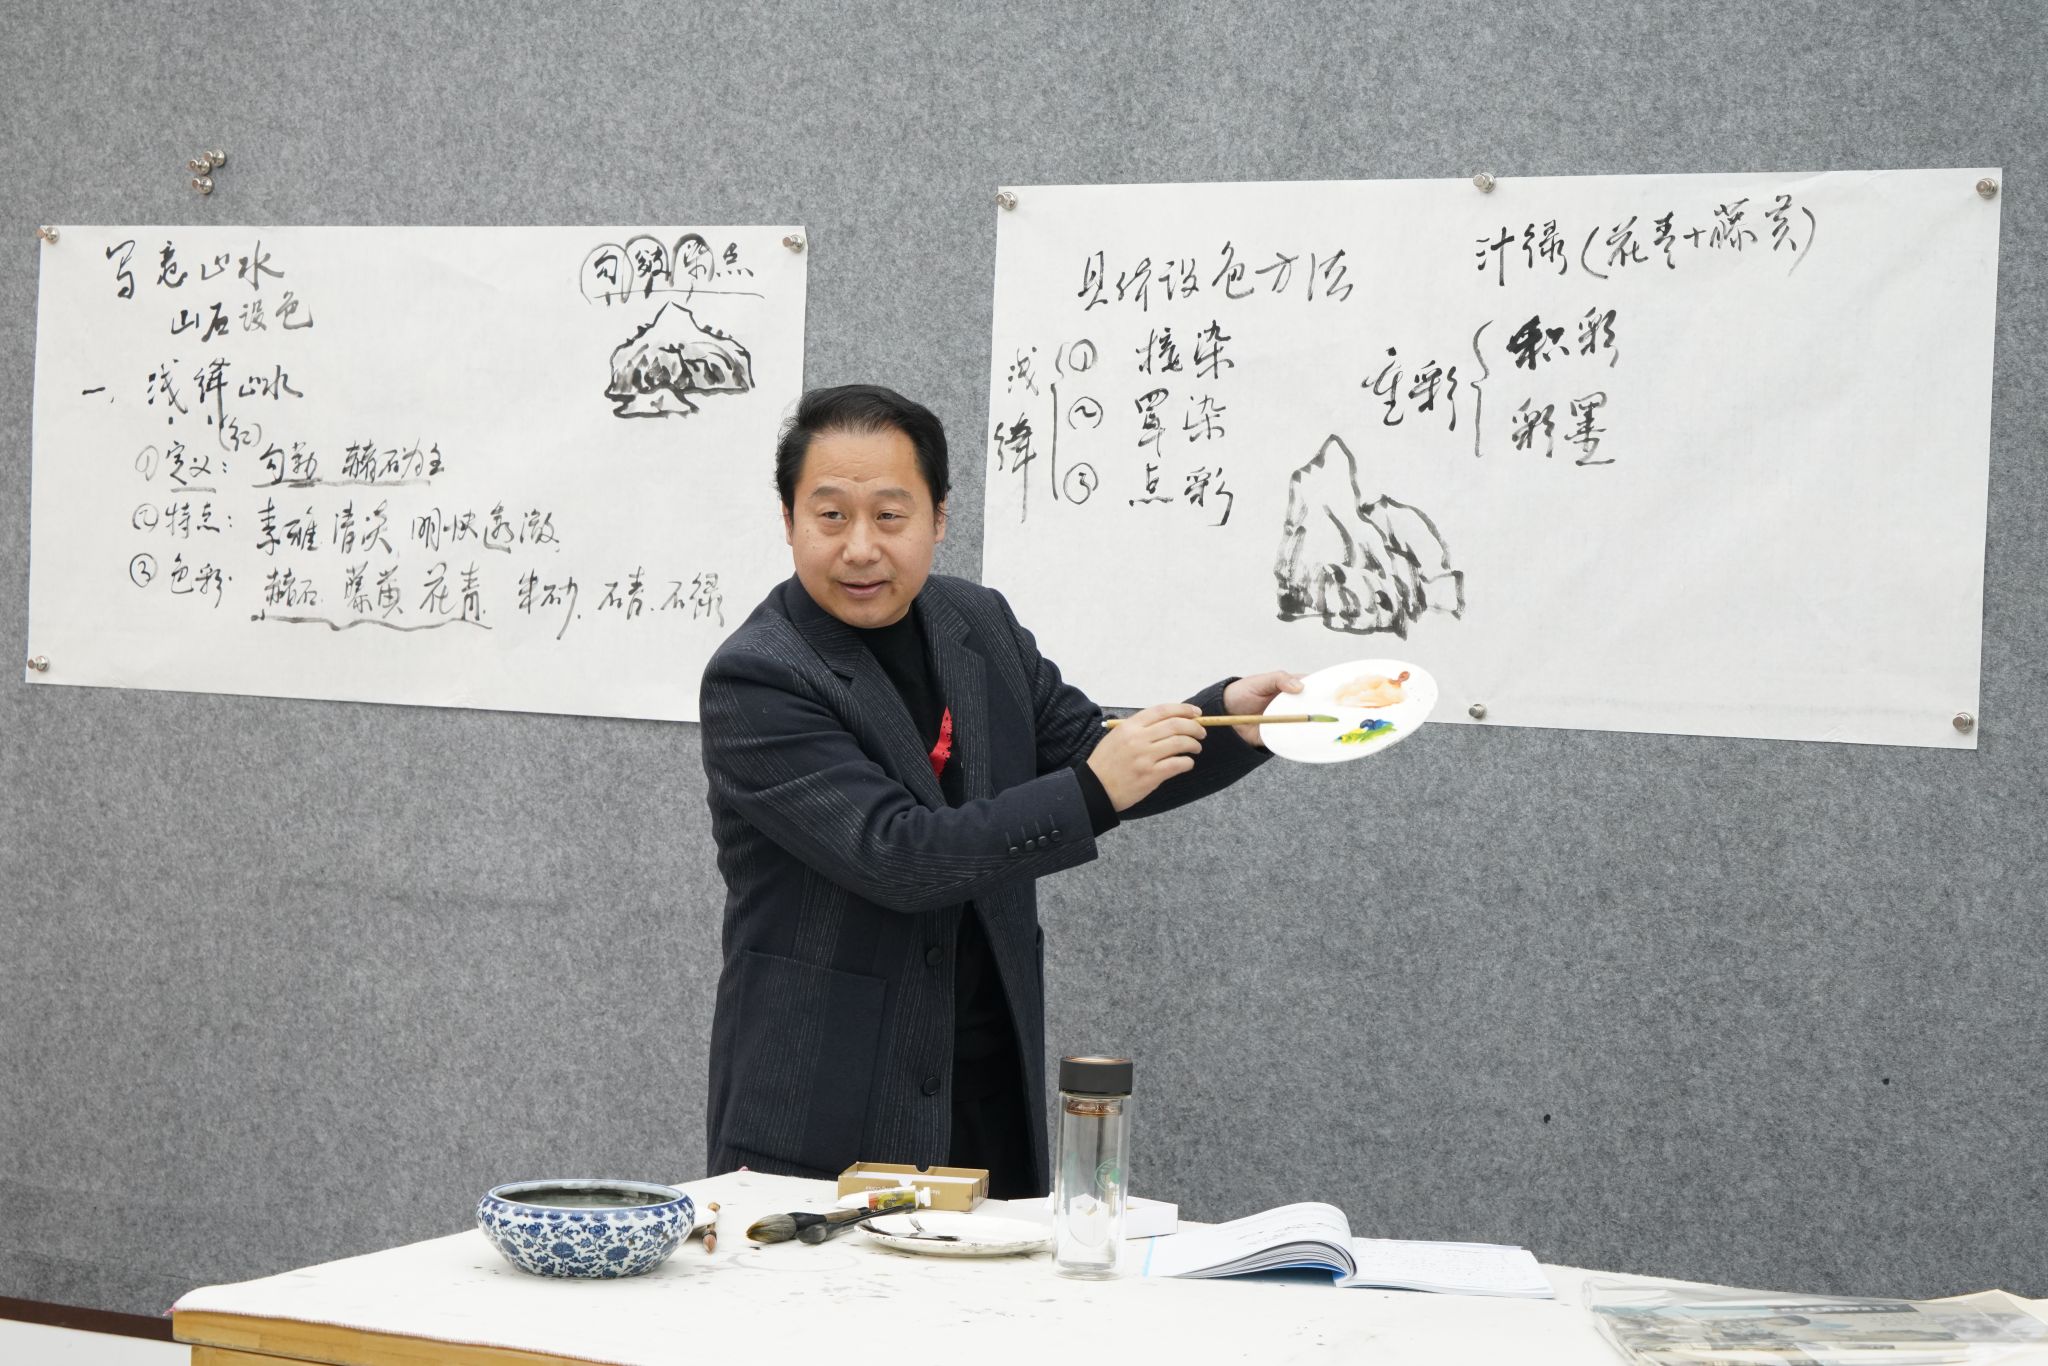 写意山水
勾皴染点
山石设色
一、浅绛山水
(红)
①定义：勾勒 赭石为主
②特点：素雅清淡 明快透澈
③色彩 赭石 藤黄 花青 朱砂、石青、石绿
汁绿(花青+藤黄)
具体设色方法
浅绛
① 接染
② 罩染
③ 点彩
重彩
积彩
彩墨